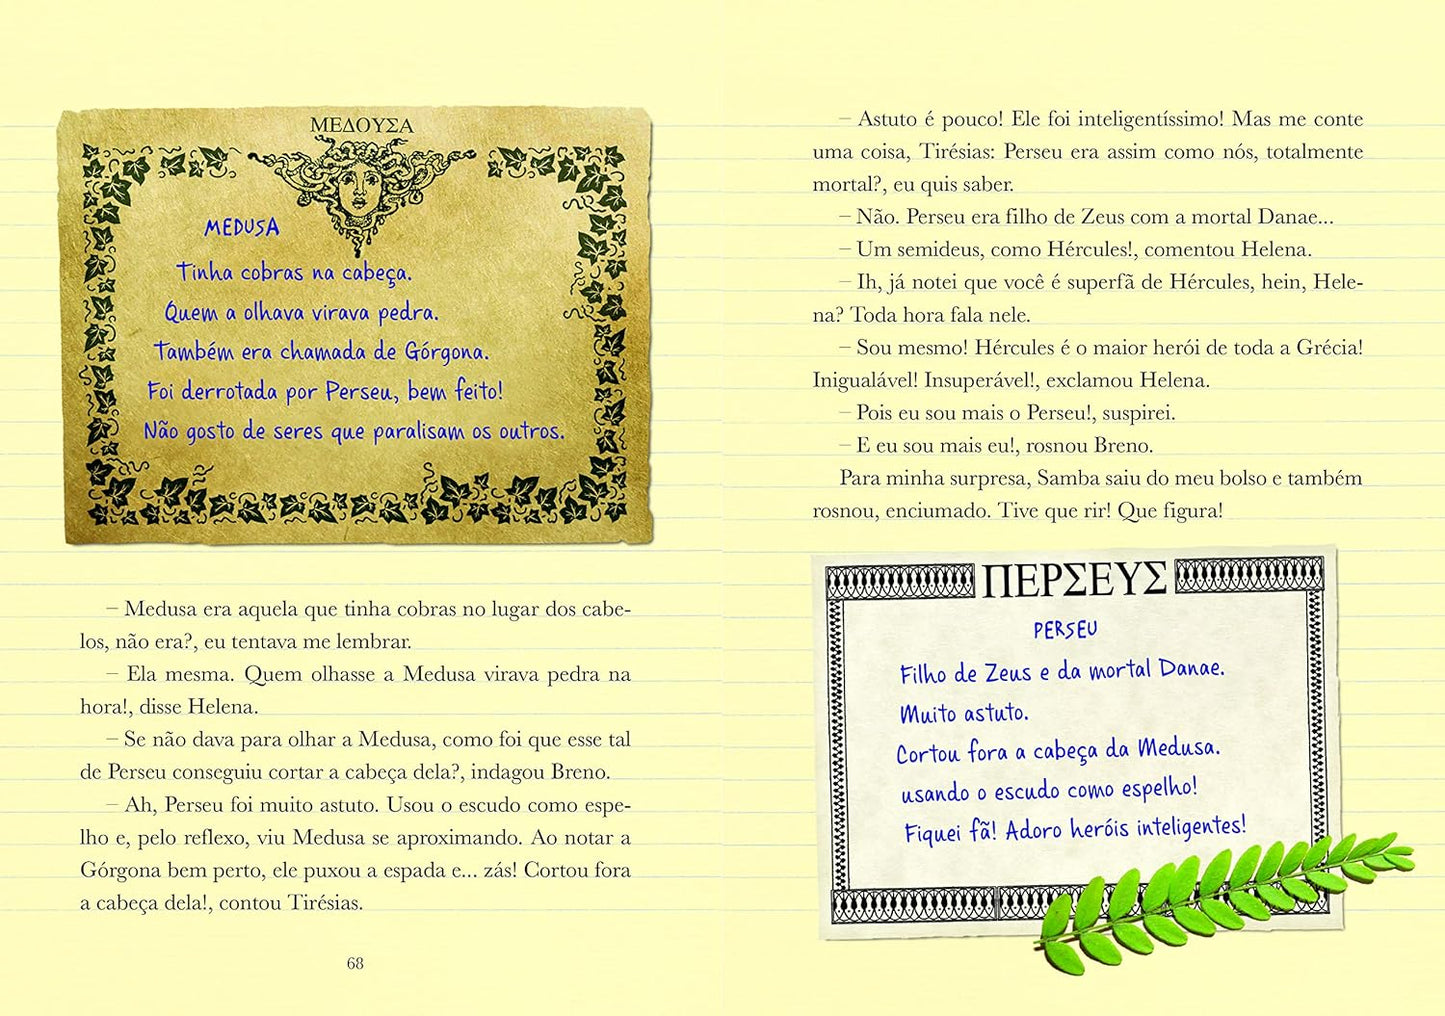 ΜΕΔΟΥΣΑ
MEDUSA
Tinha cobras na cabeça.
Quem a olhava virava pedra.
Também era chamada de Górgona.
Foi derrotada por Perseu, bem feito!
Não gosto de seres que paralisam os outros.
– Medusa era aquela que tinha cobras no lugar dos cabe-
los, não era?, eu tentava me lembrar.
– Ela mesma. Quem olhasse a Medusa virava pedra na
hora!, disse Helena.
– Se não dava para olhar a Medusa, como foi que esse tal
de Perseu conseguiu cortar a cabeça dela?, indagou Breno.
– Ah, Perseu foi muito astuto. Usou o escudo como espe-
lho e, pelo reflexo, viu Medusa se aproximando. Ao notar a
Górgona bem perto, ele puxou a espada e... zás! Cortou fora
a cabeça dela!, contou Tirésias.
68
– Astuto é pouco! Ele foi inteligentíssimo! Mas me conte
uma coisa, Tirésias: Perseu era assim como nós, totalmente
mortal?, eu quis saber.
– Não. Perseu era filho de Zeus com a mortal Danae...
– Um semideus, como Hércules!, comentou Helena.
– Ih, já notei que você é superfã de Hércules, hein, Hele-
na? Toda hora fala nele.
– Sou mesmo! Hércules é o maior herói de toda a Grécia!
Inigualável! Insuperável!, exclamou Helena.
– Pois eu sou mais o Perseu!, suspirei.
– E eu sou mais eu!, rosnou Breno.
Para minha surpresa, Samba saiu do meu bolso e também
rosnou, enciumado. Tive que rir! Que figura!
ΠΕΡΣΕΥΣ
PERSEU
Filho de Zeus e da mortal Danae.
Muito astuto.
Cortou fora a cabeça da Medusa.
usando o escudo como espelho!
Fiquei fã! Adoro heróis inteligentes!